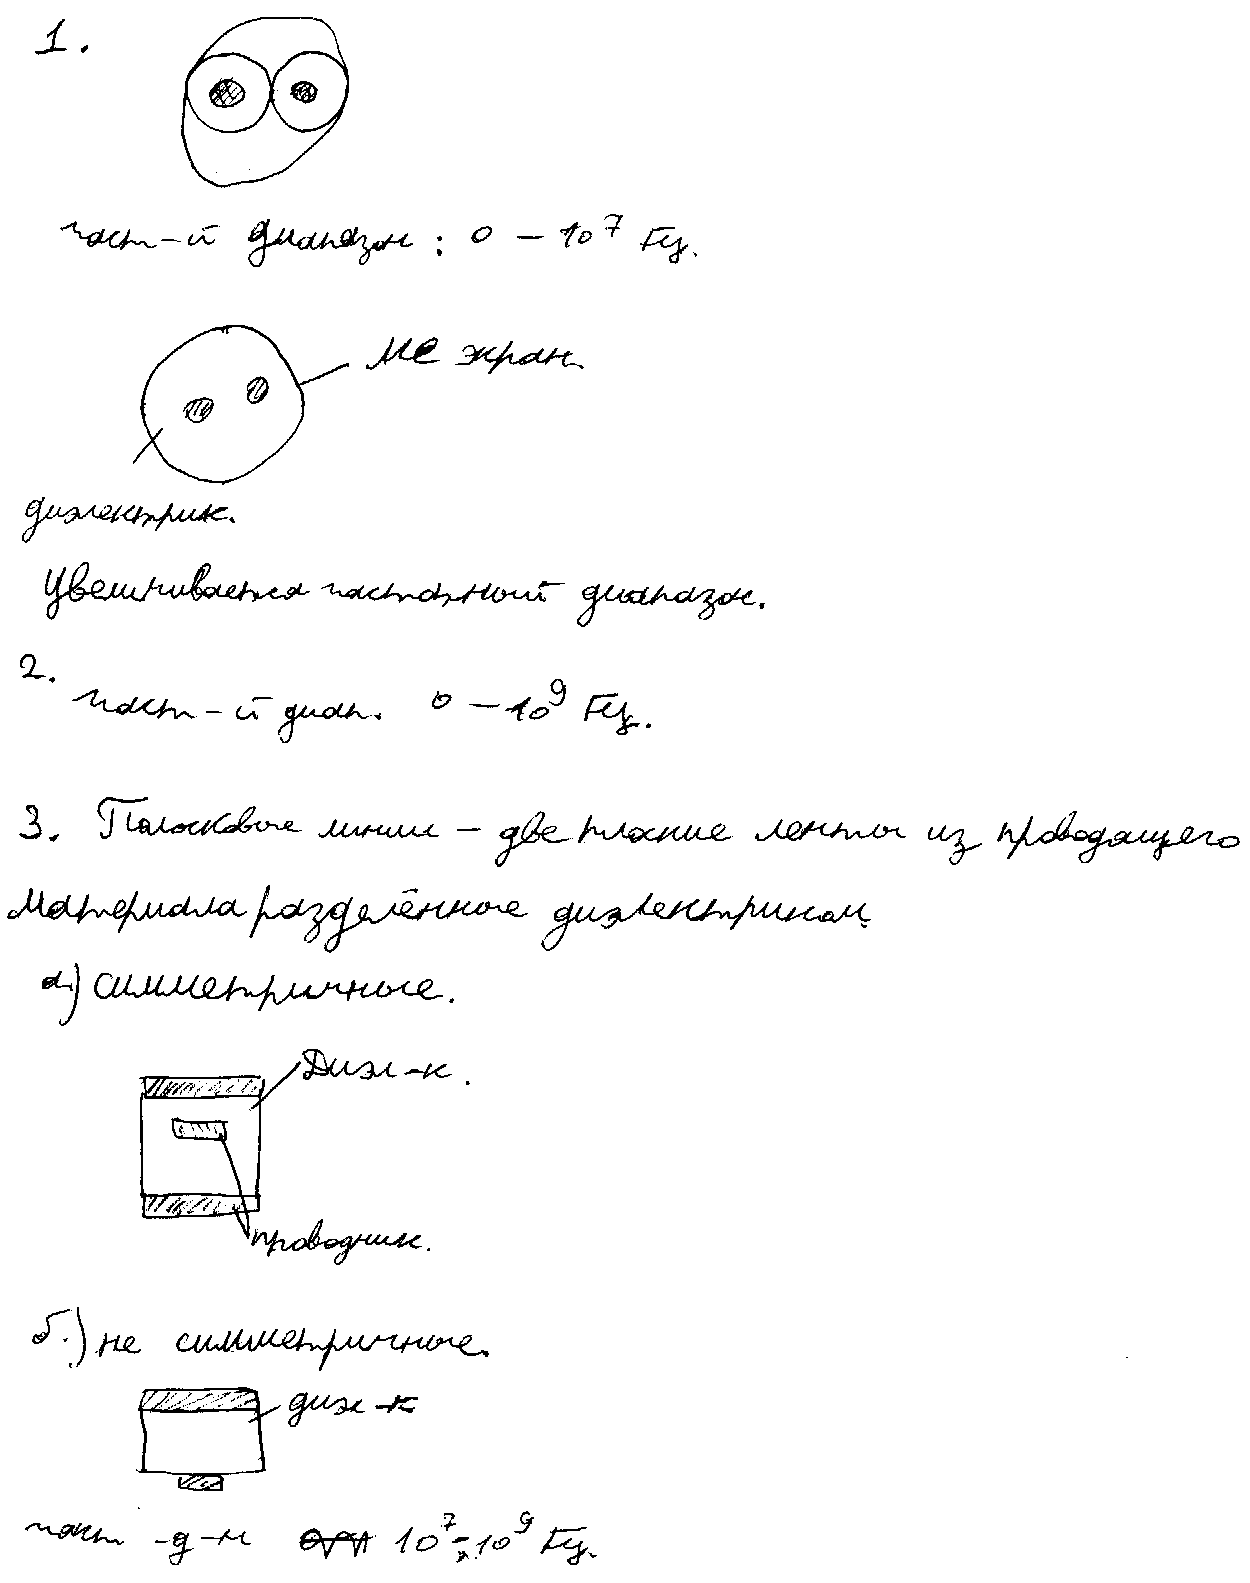 1.
част-й диапазон: 0 – 10⁷ Гц.
Ме экран.
диэлектрик.
Увеличивается частотный диапазон.
2.
част-й диап. 0 – 10⁹ Гц.
3. Полосковые линии – две плоские ленты из проводящего
материала разделённые диэлектриком.
а.) симметричные.
Диэл-к.
проводник.
б.) не симметричные.
диэл-к
част -д-н 10⁷ ÷ 10⁹ Гц.